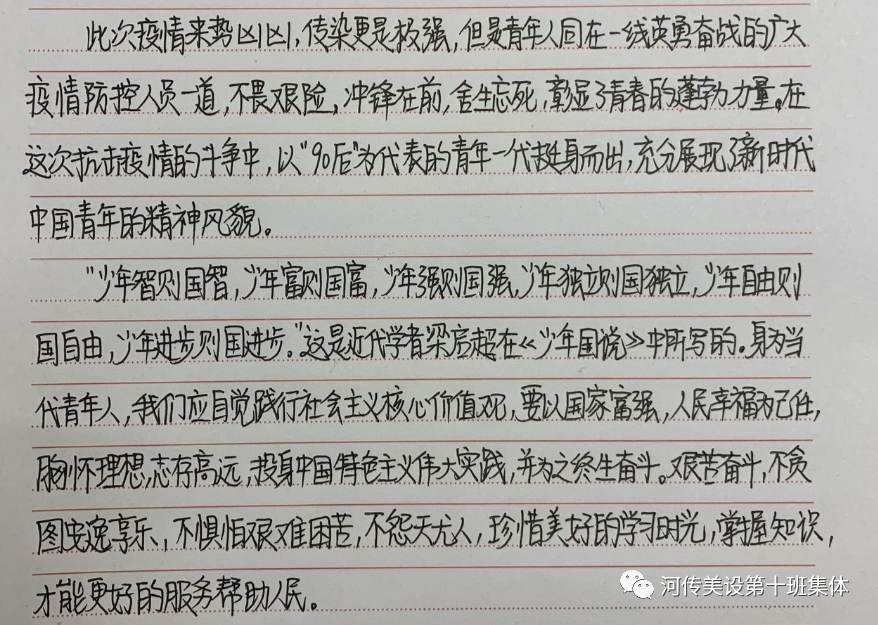 此次疫情来势凶凶,传染更是极强,但是青年人同在一线英勇奋战的广大
疫情防控人员一道,不畏艰险,冲锋在前,舍生忘死,彰显了青春的蓬勃力量。在
这次抗击疫情的斗争中,以“90后”为代表的青年一代挺身而出,充分展现了新时代
中国青年的精神风貌。
“少年智则国智,少年富则国富,少年强则国强,少年独立则国独立,少年自由则
国自由,少年进步则国进步。”这是近代学者梁启超在《少年国说》中所写的。身为当
代青年人,我们应自觉践行社会主义核心价值观,要以国家富强,人民幸福为己任,
胸怀理想,志存高远,投身中国特色主义伟大实践,并为之终生奋斗。艰苦奋斗,不贪
图安逸享乐,不惧怕艰难困苦,不怨天尤人,珍惜美好的学习时光,掌握知识,
才能更好的服务帮助人民。
河传美设第十班集体